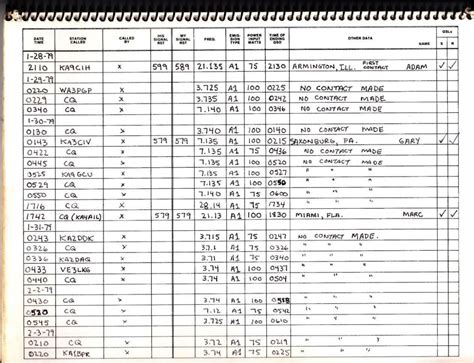 DATE TIME STATION CALLED CALLED BY HIS SIGNAL RST MY SIGNAL RST FREQ. EMIS- SION TYPE POWER INPUT WATTS TIME OF ENDING QSO OTHER DATA QSLs
NAME S R
1-28-79
2110 KA9CIH X 599 589 21.135 A1 75 2130 ARMINGTON, ILL. FIRST CONTACT ADAM ✓ ✓
1-29-79
0220 WA3PGP X 3.725 A1 100 0225 NO CONTACT MADE
0229 CQ X 3.735 A1 100 0242 NO CONTACT MADE
0340 CQ X 7.140 A1 100 0346 NO CONTACT MADE
1-30-79
0130 CQ X 3.740 A1 100 0140 NO CONTACT MADE
0143 KA3CIV X 579 579 7.135 A1 100 0215 SAXONBURG, PA. GARY ✓ ✓
0422 CQ X 7.135 A1 75 0436 NO CONTACT MADE
0445 CQ X 7.135 A1 100 0520 NO CONTACT MADE
0525 KA9GCU X 7.135 A1 100 0527 " " "
0529 CQ X 7.135 A1 100 0550 " " "
0550 CQ X 7.14 A1 75 " " "
1716 CQ X 28.14 A1 75 " " "
1742 CQ (KA4AIL) X 579 579 21.13 A1 100 1830 MIAMI, FLA. MARC ✓ ✓
1-31-79
0243 KA2DDK X 3.715 A1 75 0247 NO CONTACT MADE.
0326 CQ X 3.71 A1 75 " " "
0336 KA2DAQ X 3.71 A1 75 0340 " " "
0433 VE3LKG X 3.74 A1 100 0437 " " "
0440 CQ X 3.74 A1 100 0504 " " "
2-2-79
0430 CQ X 3.74 A1 100 0558
0520 CQ X 7.12 A1 75
0545 CQ X 3.74 A1 100 0605
2-3-79
0210 CQ X 3.74 A1 100
0220 KA1BPR X 3.74 A1